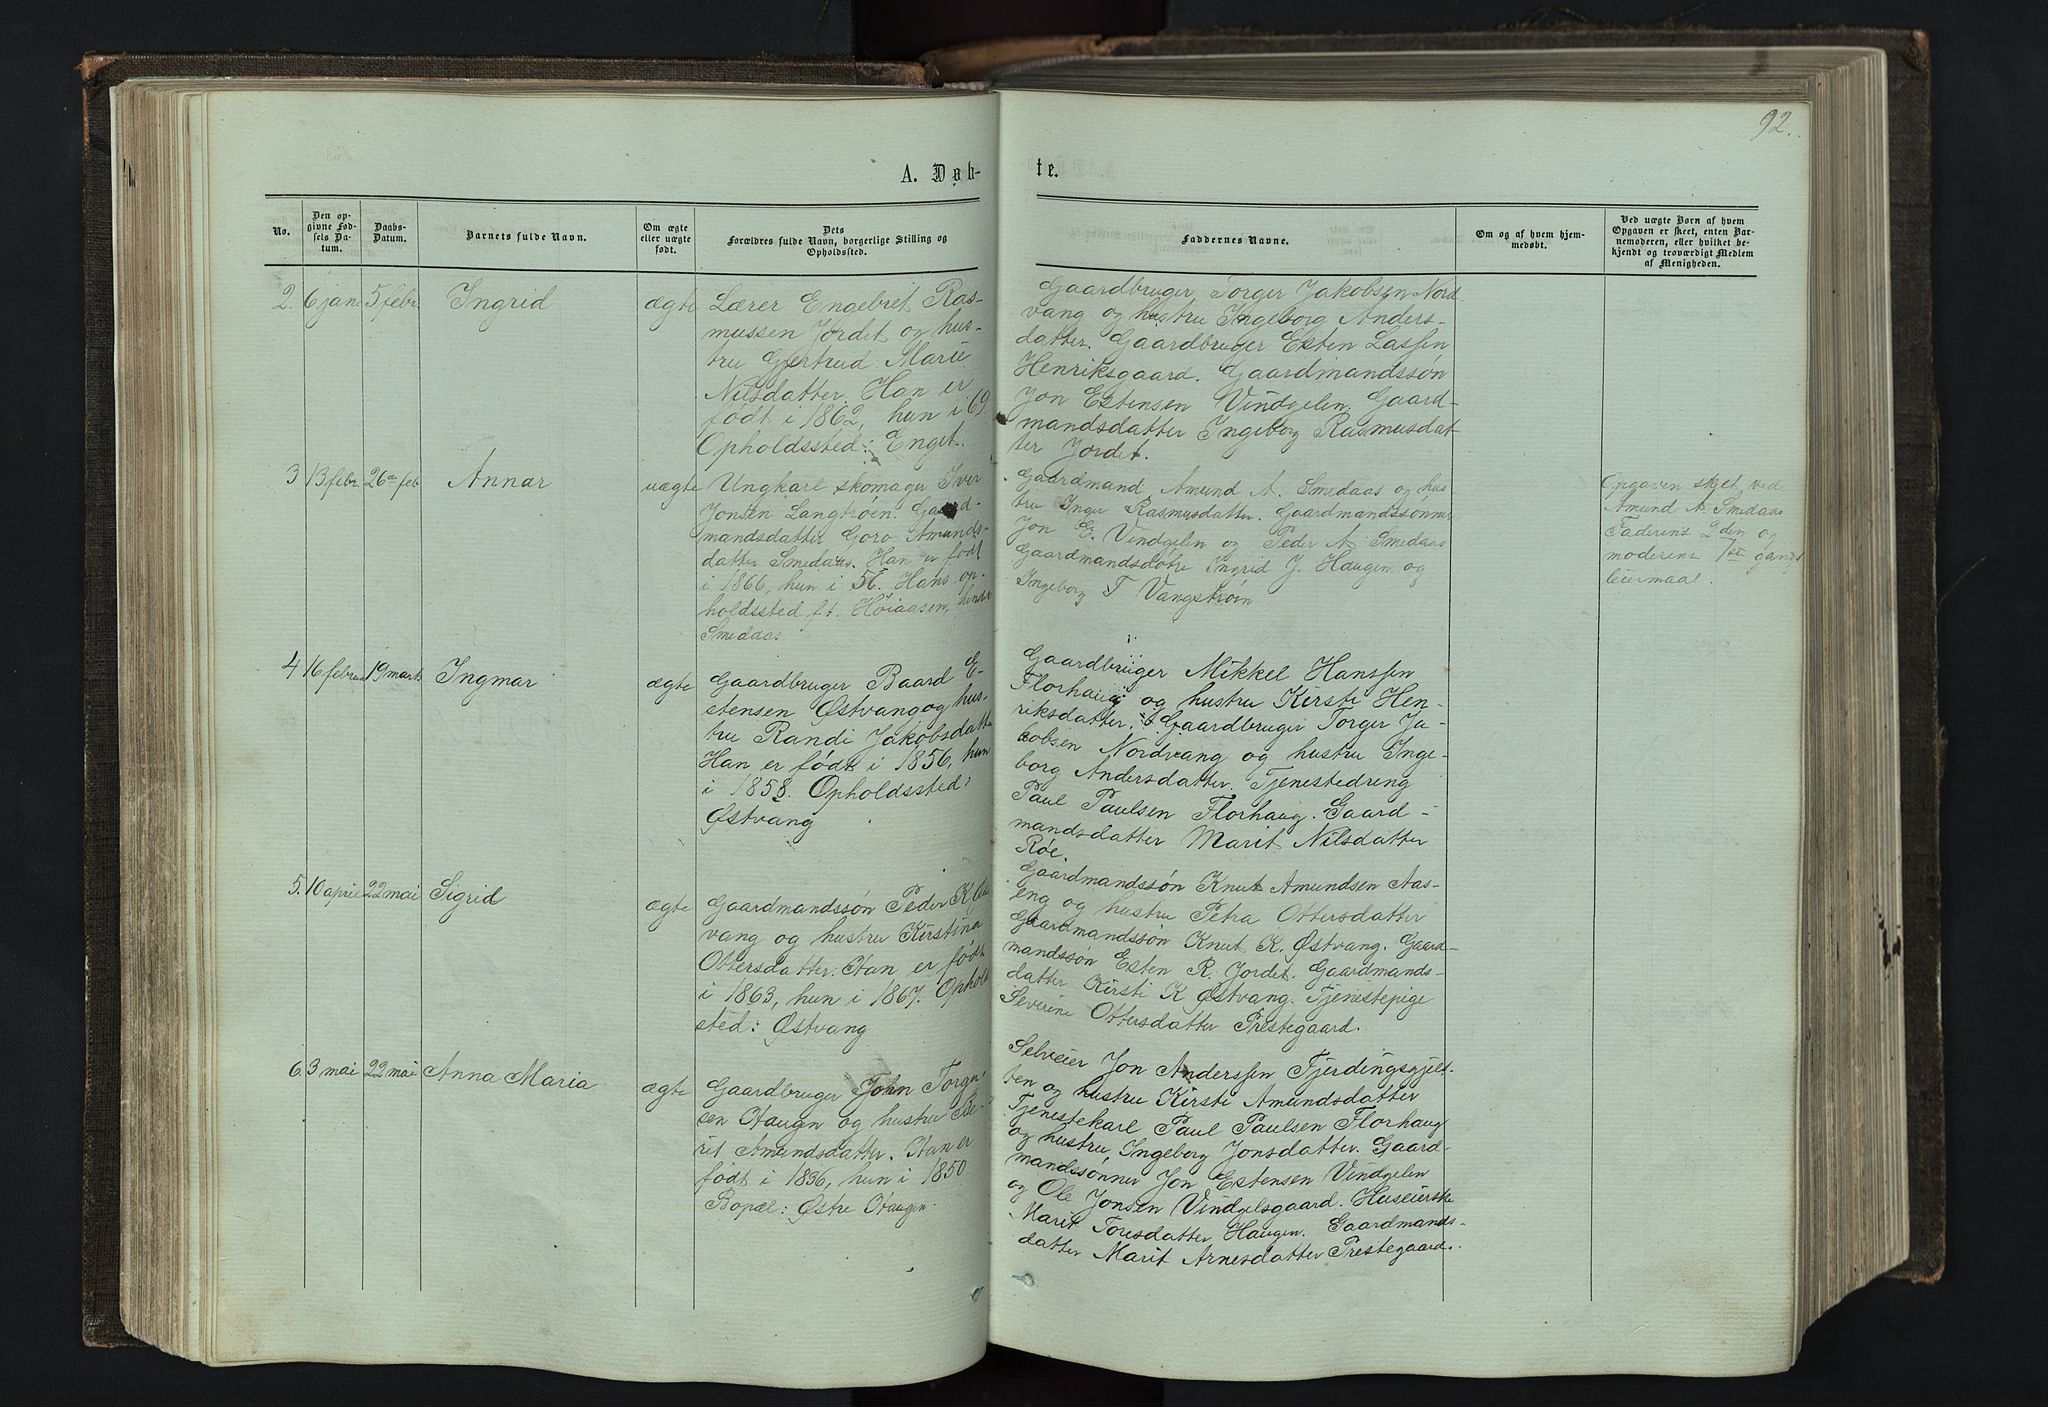 92.
A. Døb-
te.
No.
Den op-
givne Fød-
sels Da-
tum.
Daabs-
Datum.
Barnets fulde Navn.
Om ægte
eller uægte
født.
Dets
Forældres fulde Navn, borgerlige Stilling og
Opholdssted.
Faddernes Navne.
Om og af hvem hjem-
medøbt.
Ved uægte Børn af hvem
Opgaven er skeet, enten Bar-
nemoderen, eller hvilket be-
kjendt og troværdigt Medlem
af Menigheden.
2. 6 jan. 5 febr. Ingrid ægte
Lærer Engebret Ras-
mussen Jordet og hus-
tru Gjertrud Marie
Nilsdatter. Han er
født i 1862, hun i 69.
Opholdssted: Enget.
Gaardbruger Torger Jakobsen Nord
vang og hustru Ingeborg Anders-
datter. Gaardbruger Esten Lassen
Henriksgaard. Gaardmandssøn
Jon Estensen Vindgelen. Gaard-
mandsdatter Ingeborg Rasmusdat-
ter Jordet.
3 13 febr. 26de feb Annar uægte
Ungkarl skomager Iver
Jonsen Langtrøen. Gaard-
mandsdatter Goro Amunds-
datter Smedaas. Han er født
i 1866, hun i 56. Hans op-
holdssted f.t. Høiaasen, hendes
Smedaas
Gaardmand Amund A. Smedaas og hus
tru Inger Rasmusdatter. Gaardmandssønner
Jon E. Vindgelen og Peder A. Smedaas
Gaardmandsdøtre Ingrid J. Haugen og
Ingeborg T Vangstrøen
Opgaven skjet ved
Amund A. Smedaas
Faderens 2den og
moderens 1ste gangs
leiermaal.
4 16 februar 19 marts Ingmar ægte
Gaardbruger Baard E-
stensen Østvang og hus-
tru Randi Jakobsdatter
Han er født i 1856, hun
i 1858. Opholdssted:
Østvang
Gaardbruger Mikkel Hanssen
Florhaug og hustru Kirsti Hen-
riksdatter. Gaardbruger Torger Ja-
kobsen Nordvang og hustru Inge-
borg Andersdatter. Tjenestedreng
Paul Paulsen Florhaug. Gaard-
mandsdatter Marit Nilsdatter
Røe.
5. 10 april 22 mai Sigrid ægte
Gaardmandssøn Peder K Øst
vang og hustru Kirstina
Ottersdatter. Han er født
i 1863, hun i 1867. Ophold
sted: Østvang
Gaardmandssøn Knut Amundsen Aas-
eng og hustru Petra Ottersdatter
Gaardmandssøn Knut K. Østvang. Gaard-
mandssøn Esten R. Jordet. Gaardmands-
datter Kirsti K Østvang. Tjenestepige
Severine Ottersdatter Prestegaard.
6. 3 mai 22 mai Anna Maria ægte
Gaardbruger John Torger-
sen Haugn og hustru Be-
rit Amundsdatter. Han er
født i 1836, hun i 1850
Bopæl: Østre Haugen.
Selveier Jon Anderssen Fjerdingsgjel-
ten og hustru Kirsti Amundsdatter
Tjenestekarl Paul Paulsen Florhaug
og hustru Ingeborg Jonsdatter. Gaard-
mandssønner Jon Estensen Vindgelen
og Ole Jonsen Vindgelsgaard. Huseierske
Marit Toresdatter Haugen. Gaardmands-
datter Marit Arnesdatter Prestegaard.